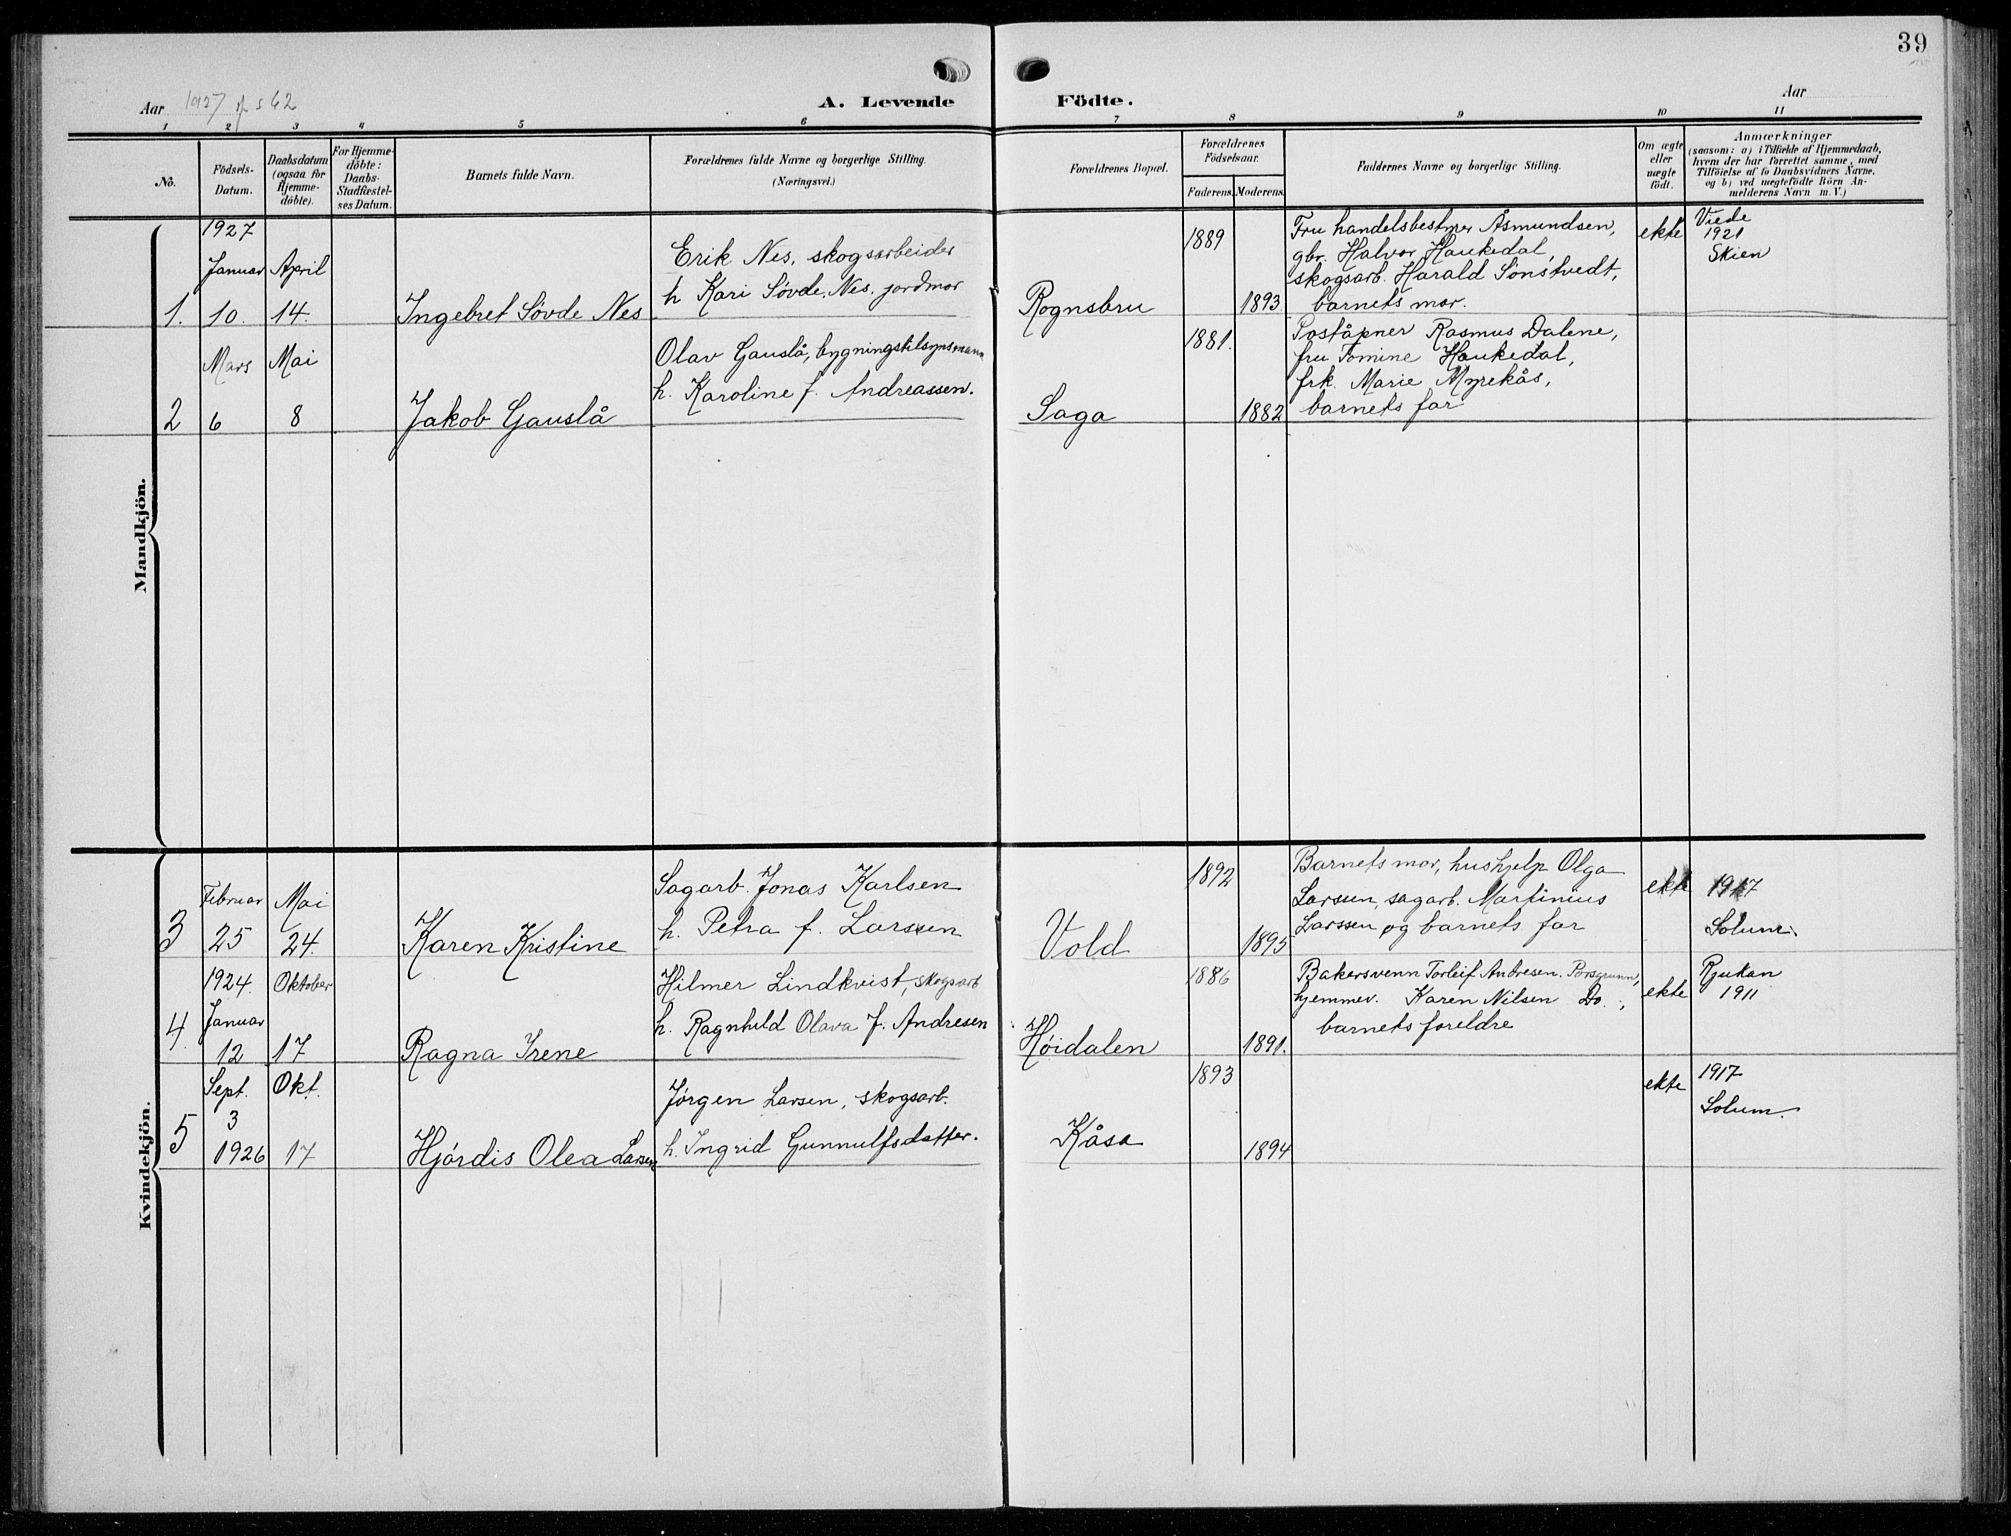 39
Aar 1927 s 62
A. Levende Födte.
Aar
1 2 3 4 5 6 7 8 9 10 11
No.
Födsels-Datum.
Daabsdatum (ogsaa for Hjemme-döbte).
For Hjemme-döbte: Daabs-Stadfæstel-ses Datum.
Barnets fulde Navn.
Forældrenes fulde Navne og borgerlige Stilling.
(Næringsvei.)
Forældrenes Bopæl.
Forældrenes Födselsaar.
Faderens. Moderens.
Faddernes Navne og borgerlige Stilling.
Om ægte eller uægte födt.
Anmærkninger
(saasom: a) i Tilfælde af Hjemmedaab,
hvem der har forrettet samme, med
Tilföielse af to Daabsvidners Navne,
og b) ved uægtefödte Börn An-
melderens Navn m. V.)
Mandkjön.
1927
Januar April
1. 10. 14. Ingebret Sövde Nes
Erik Nes, skogsarbeider
h Kari Sövde, Nes. jordmor
Rognsbru
1889
1893
Fru handelsbestyrer Åsmundsen,
gbr. Halvor Haukedal,
skogsarb. Harald Sönstvedt,
barnets mor.
ekte
Viede
1921
Skien
Mars Mai
2 6 8 Jakob Gauslå
Olav Gauslå, bygningstilsynsmann
h. Karoline f. Andreassen.
Saga
1881.
1882
Poståpner Rasmus Dalene,
fru Tomine Haukedal,
frk. Marie Myrekås,
barnets far
Kvindekjön.
Februar Mai
3 25 24. Karen Kristine
Sagarb. Jonas Karlsen
h. Petra f. Larssen
Vold
1892
1895
Barnets mor, hushjelp Olga
Larsen, sagarb. Martinius
Larssen og barnets far
ekte
1917
Solum.
1924. Oktober
Januar
4. 12 17 Ragna Irene
Hilmer Lindkvist, skogsarb
h. Ragnhild Olava f. Andresen
Höidalen
1886
1891.
Bakersvenn Torleif Andresen. Porsgrunn,
hjemmev. Karen Nilsen Do.,
barnets foreldre
ekte
Rjukan
1911
Sept. Okt.
3
5 1926 17 Hjördis Olea Larsen
Jörgen Larsen, skogsarb.
h. Ingrid Gunnulfsdatter.
Kåsa
1893
1894
ekte
1917
Solum.